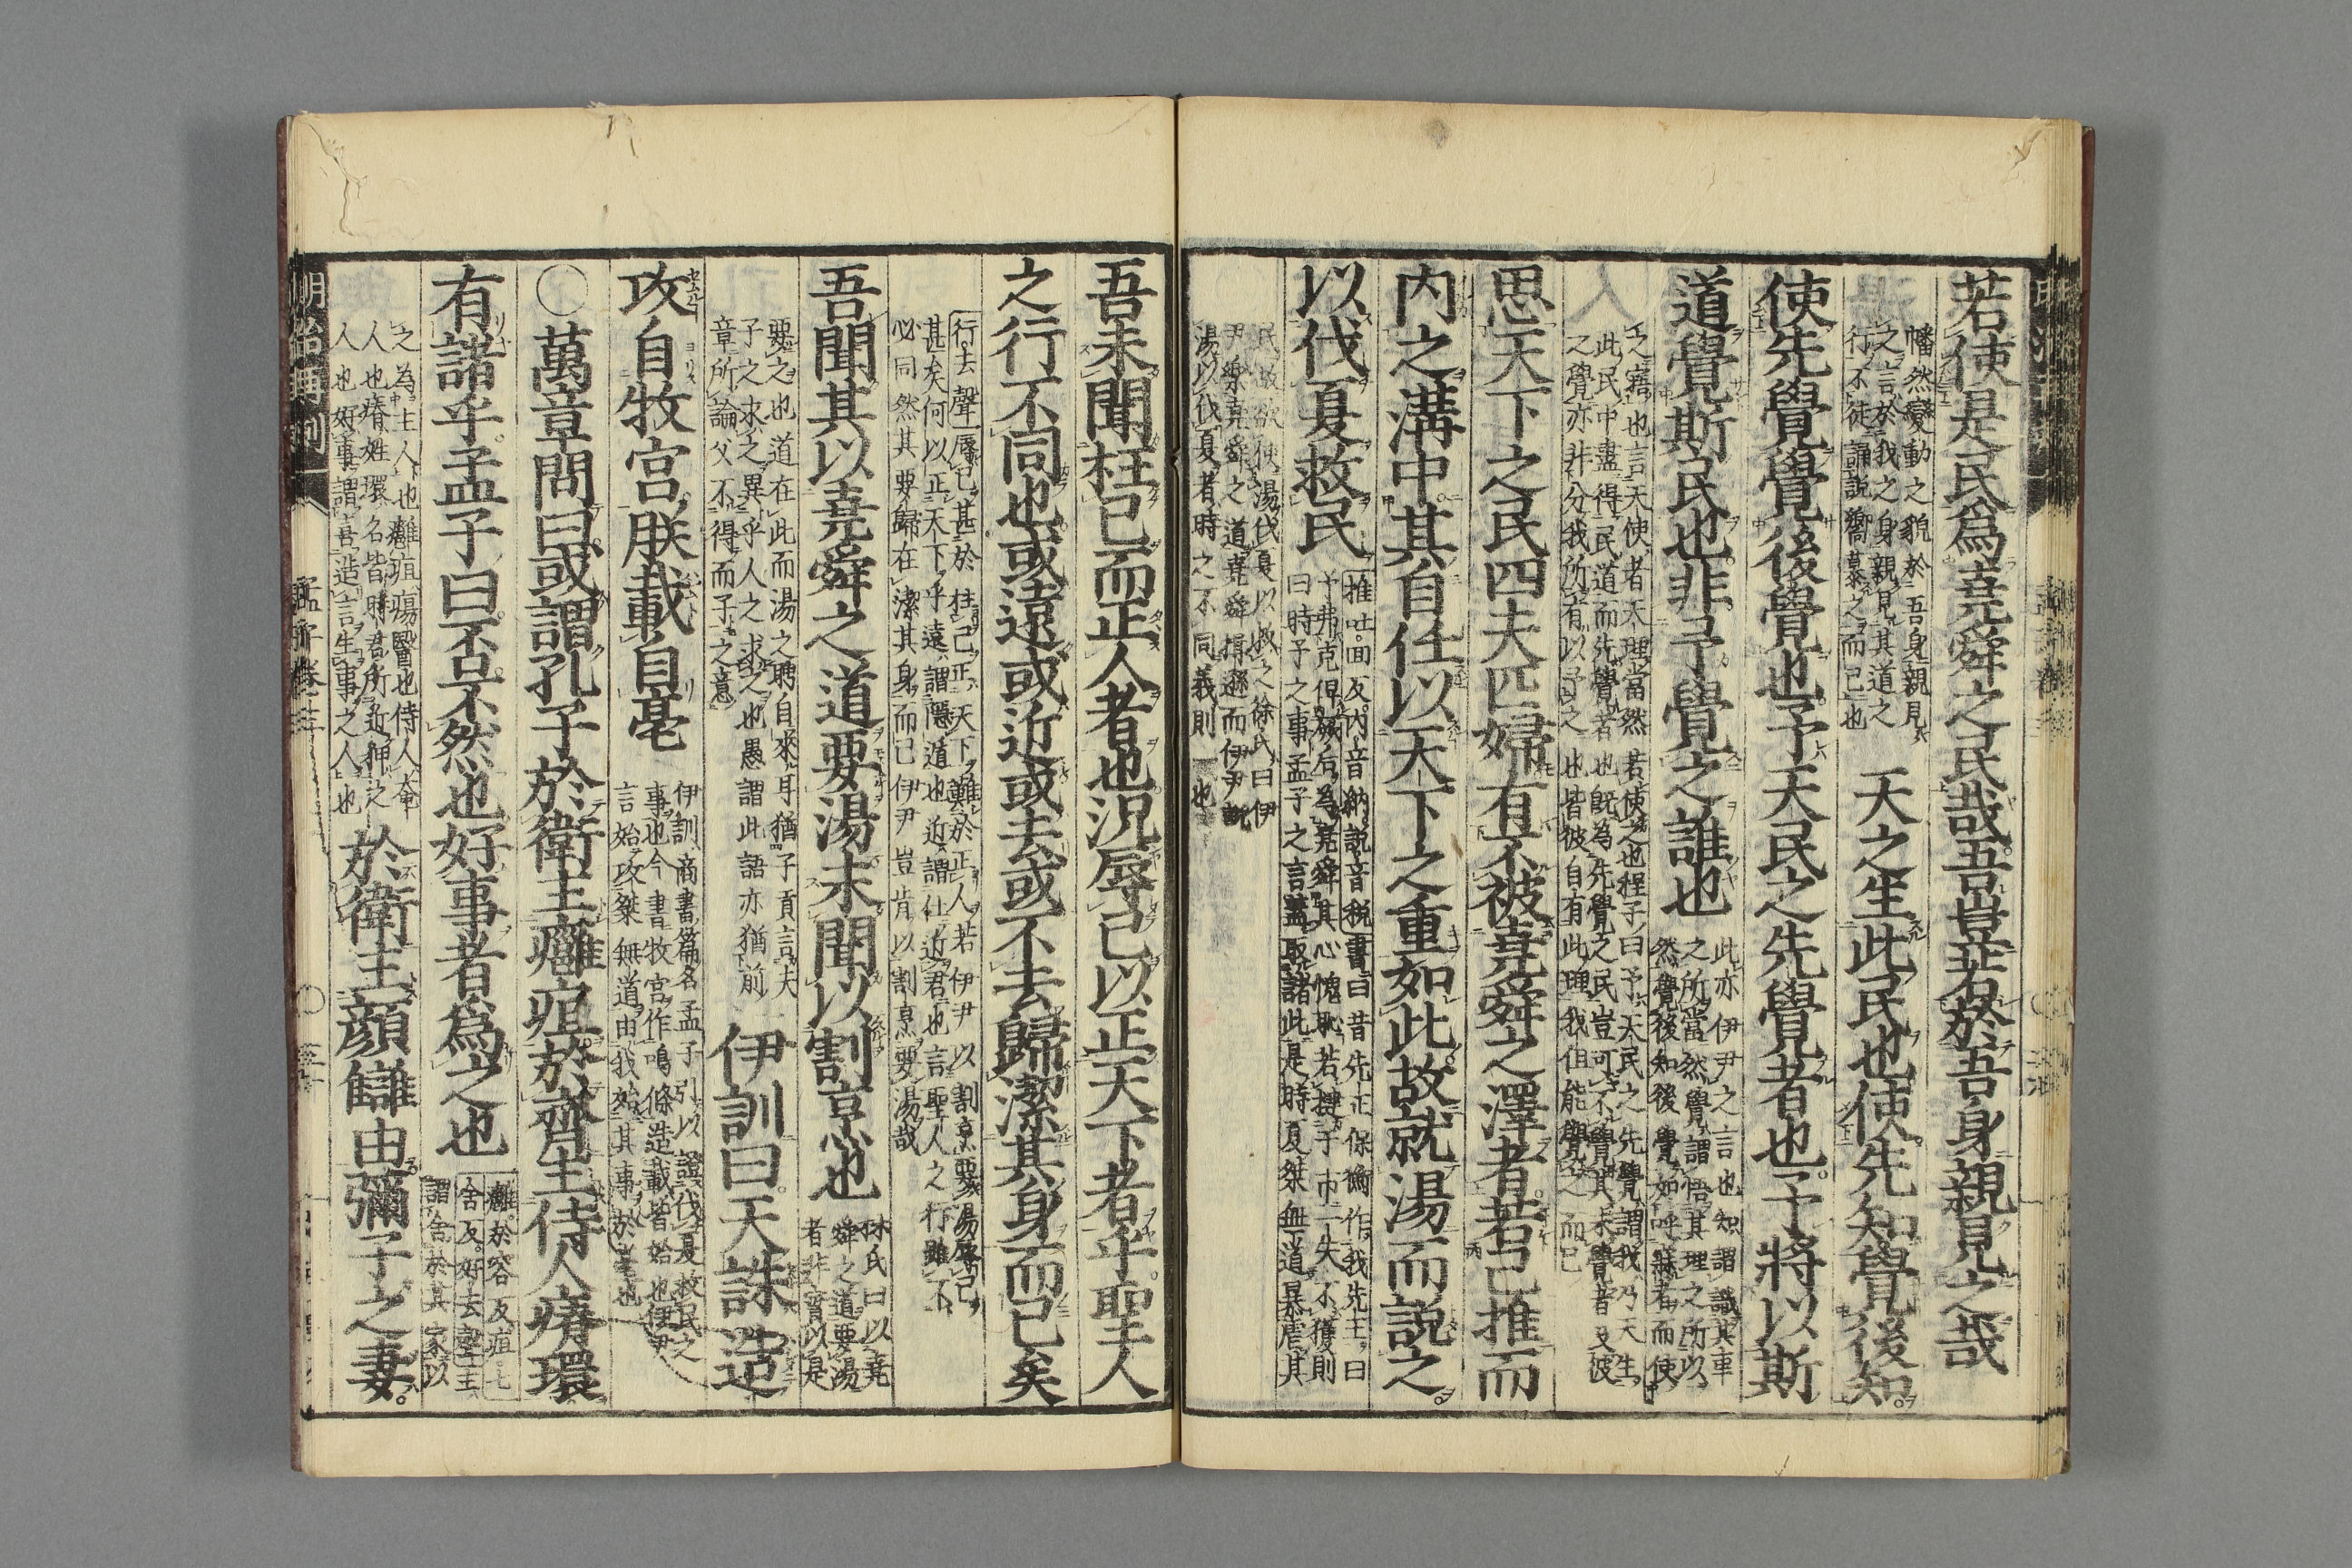 若使是民爲堯舜之民哉吾豈若於吾身親見之哉
幡然變動之貌於吾身親見
之言於我之身親見其道之
行不徒誦說嚮慕之而已也
天之生此民也使先知覺後知
使先覺覺後覺也予天民之先覺者也予將以斯
道覺斯民也非予覺之而誰也
此亦伊尹之言也知謂識其事
之所當然覺謂悟其理之所以
然覺後知後覺如呼寐者而使
之寤也言天使者天理當然若使之也程子曰予天民之先覺謂我乃天生
此民中盡得民道而先覺者也既為先覺之民豈可不覺其未覺者及彼
之覺亦非分我所有以予之也皆彼自有此理我但能覺之而已
思天下之民匹夫匹婦有不被堯舜之澤者若己推而
内之溝中其自任以天下之重如此故就湯而說之
以伐夏救民
推吐回反内音納說音稅書曰昔先正保衡作我先王曰
予弗克俾厥后為堯舜其心愧恥若撻于市一夫不獲則
曰時予之辜孟子之言蓋取諸此是時夏桀無道暴虐其
民故欲使湯伐夏以救之徐氏曰伊
尹樂堯舜之道堯舜揖遜而伊尹說
湯以伐夏者時之不同義則一也
吾未聞枉己而正人者也況辱己以正天下者乎聖人
之行不同也或遠或近或去或不去歸潔其身而已矣
行去聲辱己甚於枉己正天下難於正人若伊尹以割烹要湯辱己
甚矣何以正天下乎遠謂隱遁也近謂仕近君也言聖人之行雖不
必同然其要歸在潔其身而已伊尹豈肯以割烹要湯哉
吾聞其以堯舜之道要湯未聞以割烹也
林氏曰以堯
舜之道要湯
者非實以是
要之也道在此而湯之聘自來耳猶子貢言夫
子之求之異乎人之求之也愚謂此語亦猶前
章所論父不得而子之意
伊訓曰天誅造
攻自牧宮朕載自亳
伊訓商書篇名孟子引以證伐夏救民之
事也今書牧宮作鳴條造載皆始也伊尹
言始攻桀無道由我始其事於亳也
○萬章問曰或謂孔子於衛主癰疽於齊主侍人瘠環
有諸乎孟子曰否不然也好事者爲之也
癰於容反疽七
余反好去聲主
謂舍於其家以
之為主人也癰疽瘍醫也侍人奄
人也瘠姓環名皆時君所近狎之
人也好事謂喜造言生事之人也
於衛主顏讎由彌子之妻
孟子卷三